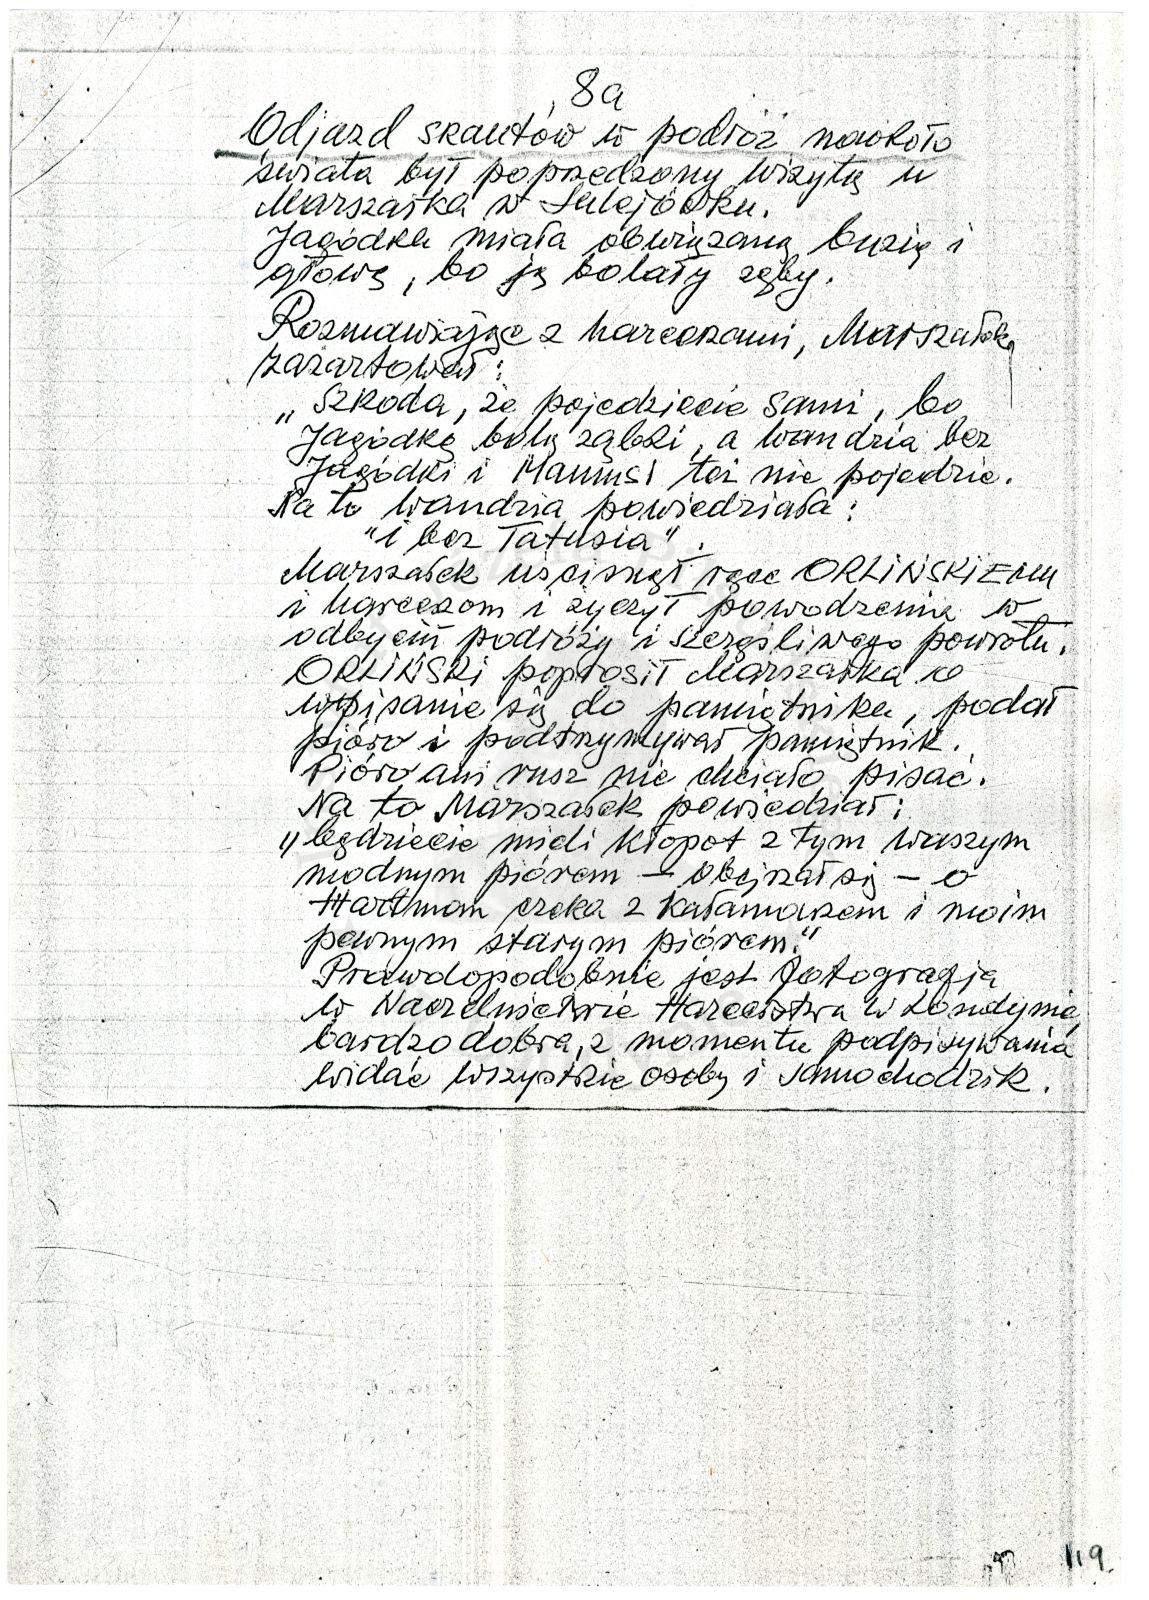 8a
Odjazd skautów w podróż naokoło
świata był poprzedzony wizytą u
Marszałka w Sulejówku.
Jagódka miała obwiązaną buzię i
głowę, bo ją bolały zęby.
Rozmawiając z harcerzami, Marszałek
zażartował:
„Szkoda, że pojedziecie sami, bo
Jagódkę bolą ząbki, a Wandzia bez
Jagódki i Mamusi też nie pojedzie.
Na to Wandzia powiedziała:
"i bez Tatusia".
Marszałek uścisnął ręce ORLIŃSKIEMU
i harcerzom i życzył powodzenia w
odbyciu podróży i szczęśliwego powrotu.
ORLIŃSKI poprosił Marszałka o
wpisanie się do pamiętnika, podał
pióro i podtrzymywał pamiętnik.
Pióro ani rusz nie chciało pisać.
Na to Marszałek powiedział:
"będziecie mieli kłopot z tym waszym
modnym piórem — obejrzał się — o
Hartman czeka z kałamarzem i moim
pewnym starym piórem."
Prawdopodobnie jest fotografia
w Naczelnictwie Harcerstwa w Londynie
bardzo dobra, z momentu podpisywania
widać wszystkie osoby i samochodzik.
119